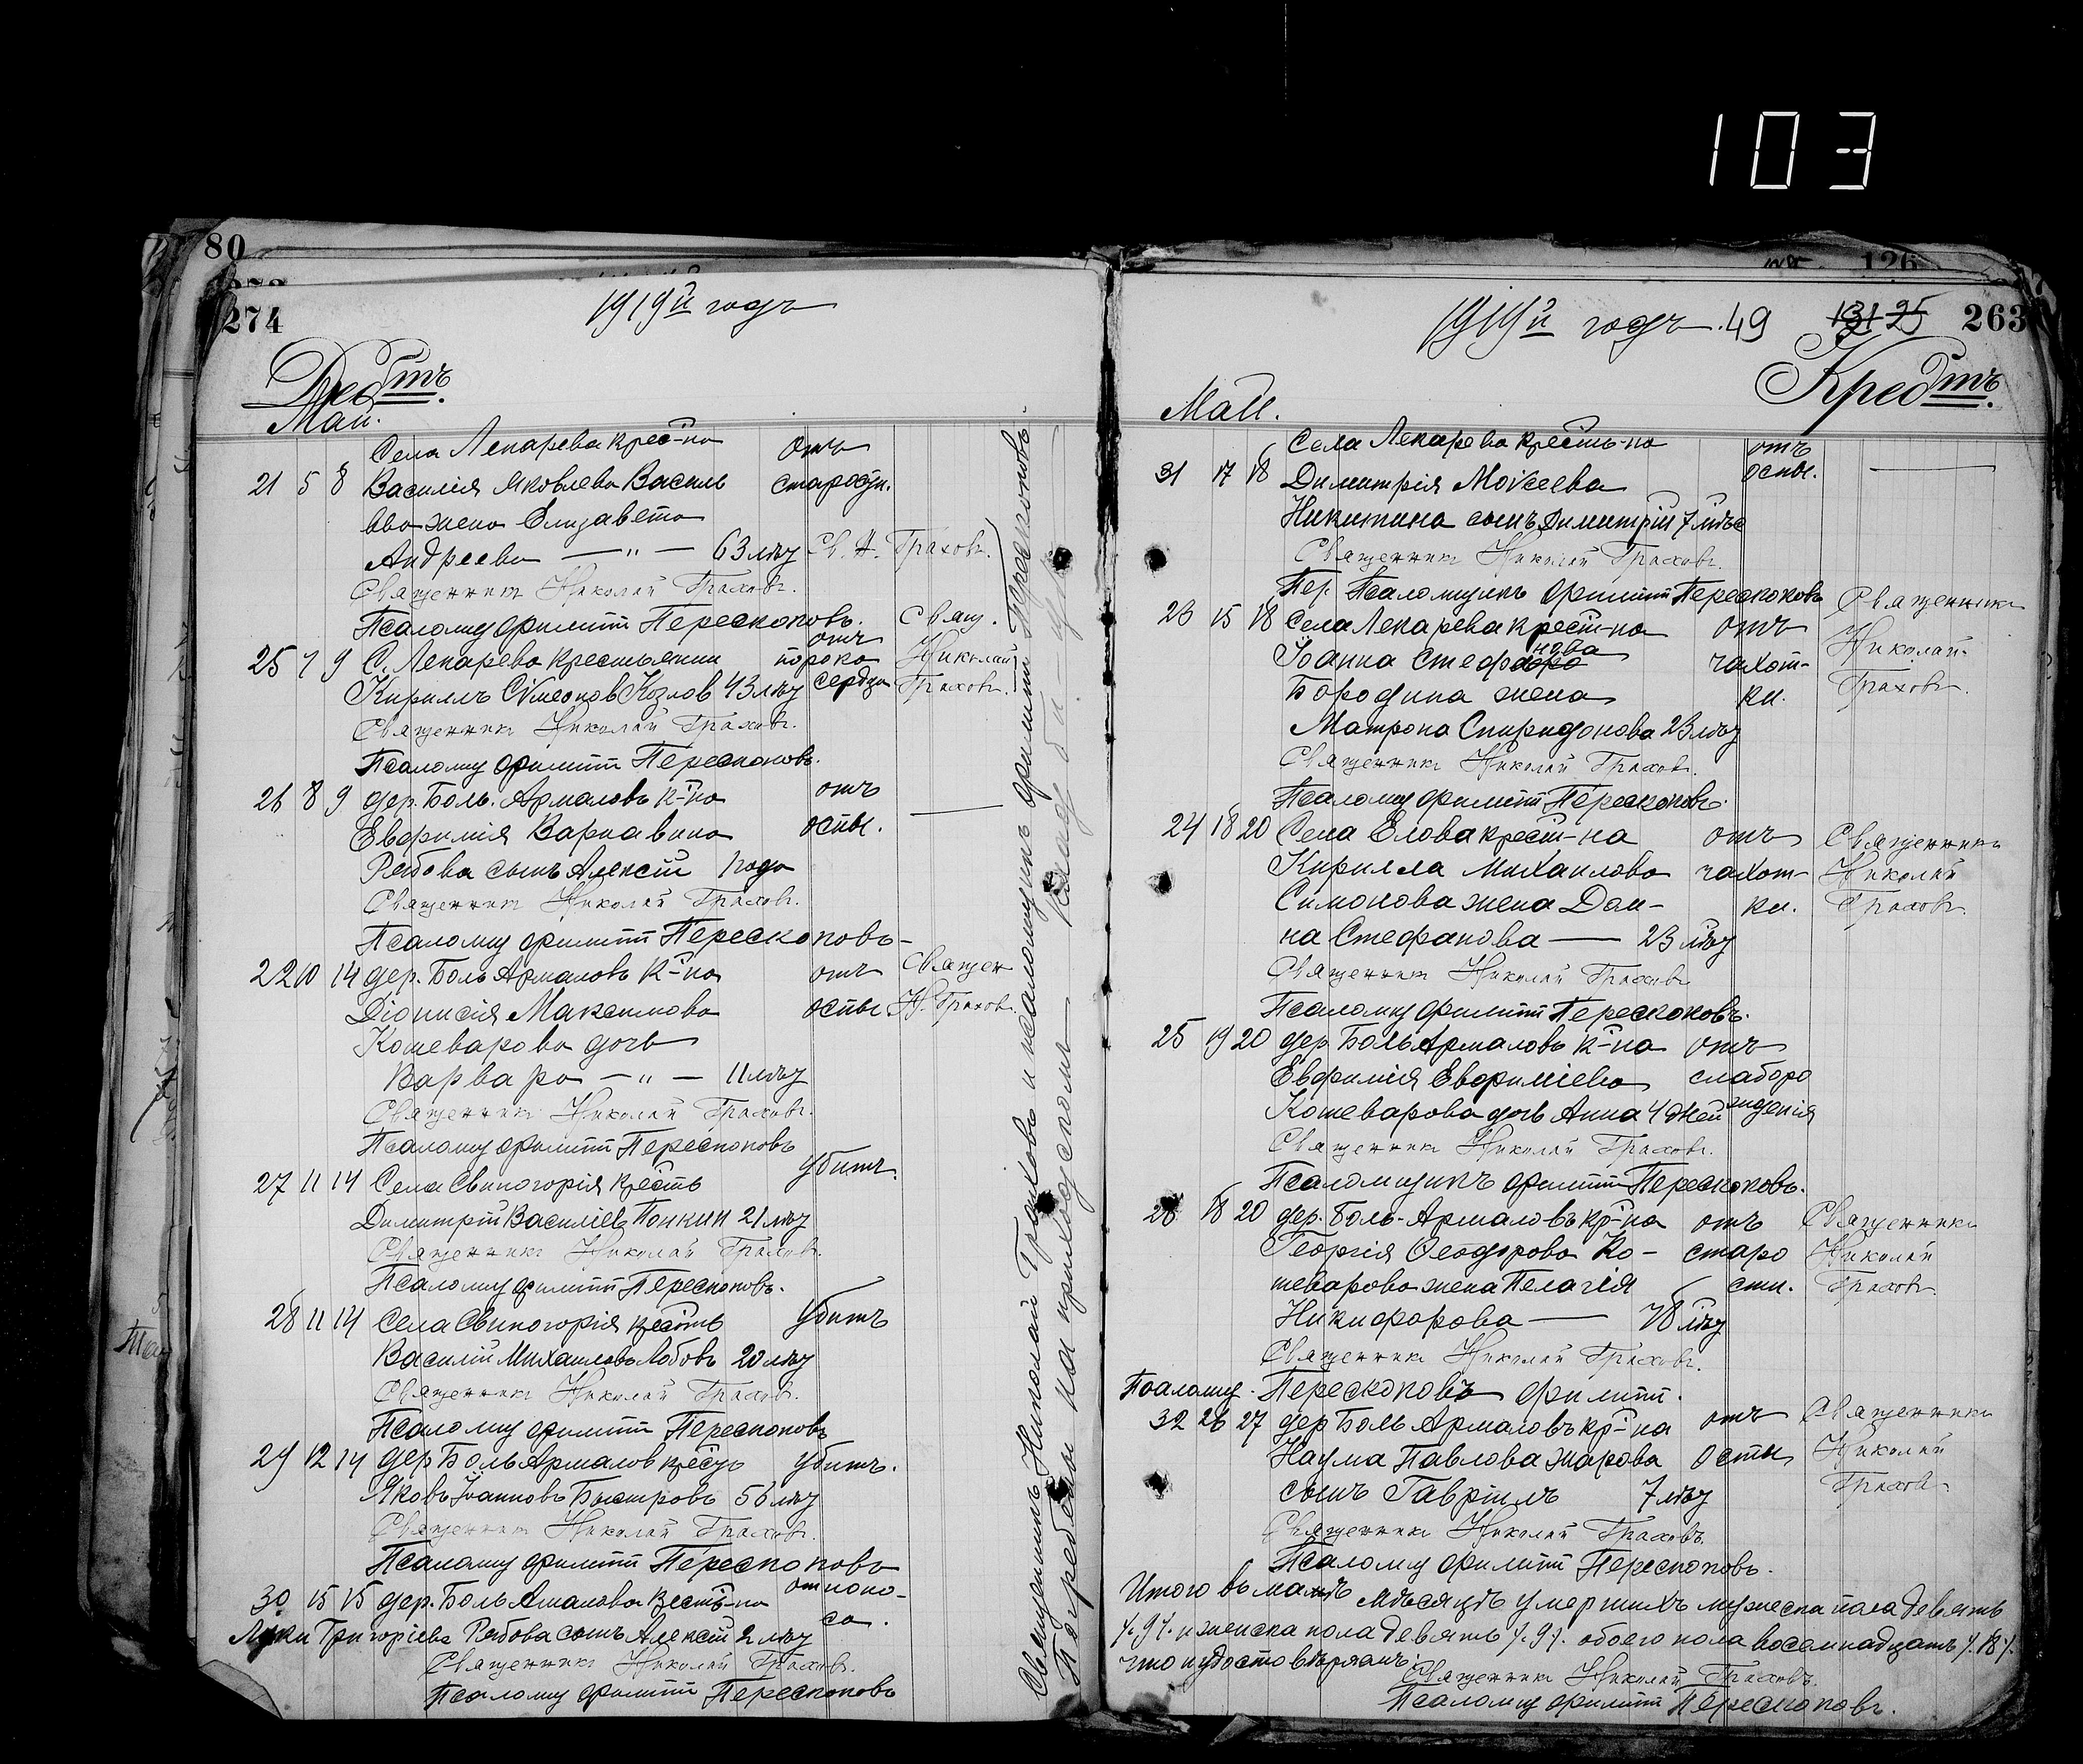 103
80
274
1919й годъ
Дебетъ.
Май.
Села Лекарева крес-на
21 5 8 Василія Яковлева Василь
ева жена Елизавета
Андреева — " — 63 лѣт
отъ
старости.
Св. Н. Траховъ.
Священникъ Николай Траховъ.
Псаломщ Филиппъ Перескоковъ.
25 7 9 С. Лекарева крестьянин
Кириллъ Симеонов Козлов 43 лѣт
отъ
порока
сердца
Свящ.
Николай
Траховъ.
Священникъ Николай Траховъ.
Псаломщ Филиппъ Перескоковъ.
26 8 9 дер. Боль. Армаловъ к-на
Евфимія Варнавина
Рябова сынъ Алексій 1 года
отъ
оспы.
Священникъ Николай Траховъ.
Псаломщ Филиппъ Перескоковъ
22 10 14 дер. Боль Армаловъ к-на
Діонисія Максимова
Кошеварова дочь
Варвара — " — 11 лѣт
отъ
оспы
Священ
Н. Траховъ.
Священникъ Николай Траховъ.
Псаломщ Филиппъ Перескоковъ
27 11 14 Села Свиногорія кресть
Димитрій Василіев Понкин 21 лѣт
убитъ.
Священникъ Николай Траховъ.
Псаломщ Филиппъ Перескоковъ.
28 11 14 Села Свиногорія кресть
Василій Михаиловъ Лобовъ 20 лѣт
убитъ
Священникъ Николай Траховъ.
Псаломщ Филиппъ Перескоковъ
29 12 14 дер Боль Армалов крест
Яковъ Іоанновъ Быстровъ 56 лѣт
убитъ.
Священникъ Николай Траховъ.
Псаломщ Филиппъ Перескоковъ
30 15 15 дер. Боль Амалова кресть-на
Луки Григоріева Рябова сынъ Алексій 2 лѣт
от поно-
са.
Священникъ Николай Траховъ.
Псаломщ Филиппъ Перескоковъ
Священникъ Николай Траховъ и псаломщикъ Филиппъ Перескоковъ.
Погребены на приходскомъ
126
1919й годъ 49
131 25
263
Кредтъ.
Май.
Села Лекарева кресть-на
31 17 18 Димитрія Моисеева
Никитина сынъ Димитрій 7 мѣс
отъ
оспы.
Священникъ Николай Траховъ.
Псаломщикъ Филиппъ Перескоковъ
23 15 18 Села Лекарева крест-на
Іоанна Стефанова
Бородина жена
Матрона Спиридонова 23 лѣт
отъ
чахот-
ки.
Священникъ
Николай
Траховъ.
Священникъ Николай Траховъ.
Псаломщ Филиппъ Перескоковъ.
24 18 20 Села Елова крест-на
Кирилла Михаилова
Симонова жена Дом-
на Стефанова — 23 лѣт
отъ
чахот-
ки.
Священникъ
Николай
Траховъ.
Священникъ Николай Траховъ
Псаломщ Филиппъ Перескоковъ.
25 19 20 дер Боль Армаловъ к-на
Евфимія Евфиміева
Кошеварова дочь Анна 4 дней
отъ
слаборо
жденія
Священникъ Николай Траховъ.
Псаломщикъ Филиппъ Перескоковъ.
26 18 20 дер. Боль-Армаловъ кр-на
Георгія Ѳеодорова Ко-
шеварова жена Пелагія
Никифорова — 78 лѣт
отъ
старо
сти.
Священникъ
Николай
Траховъ
Священникъ Николай Траховъ.
Псаломщ. Перескоковъ Филиппъ.
32 26 27 дер Боль Армаловъ кр-на
Наума Павлова Жарова
сынъ Гавріилъ 7 лѣт
отъ
оспы
Священникъ
Николай
Траховъ
Священникъ Николай Траховъ.
Псаломщ Филиппъ Перескоковъ.
Итого въ маѣ мѣсяцѣ умершихъ мужеска пола девять
/. 9 /. и женска пола девять /. 9 /. обоего пола восемнадцать /. 18 /.
что и удостовѣряемъ:
Священникъ Николай Траховъ.
Псаломщ Филиппъ Перескоковъ.